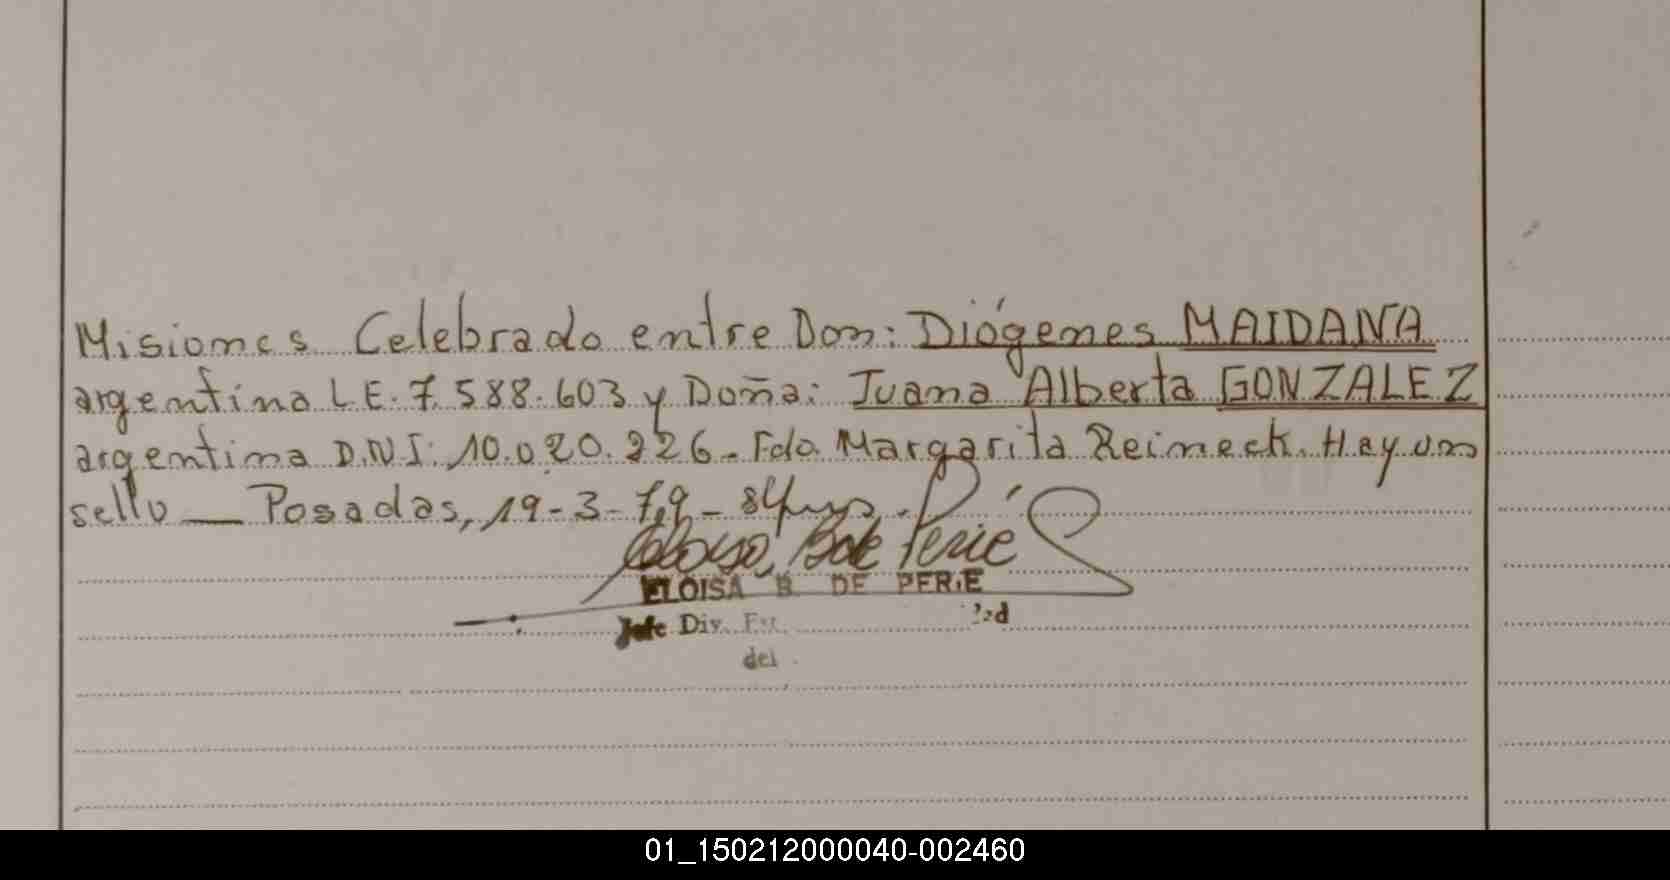 Misiones Celebrado entre Don: Diógenes MAIDANA
argentino L E. 7.588.603 y Doña: Juana Alberta GONZALEZ
argentina D.N.I. 10.020.226. Fdo. Margarita Reineck. Hay un
sello — Posadas, 19-3-79 -
Eloisa B de Perié
ELOISA B. DE PERIE
Jefe Div.
del
01_150212000040-002460